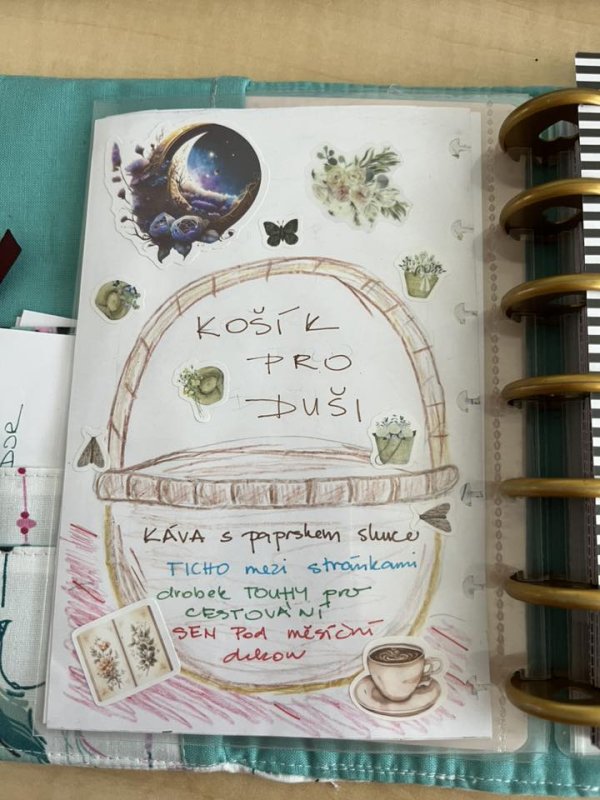 KOŠÍK
PRO
DUŠI
KÁVA s paprskem slunce
TICHO mezi stránkami
drobek TOUHY pro
CESTOVÁNÍ
SEN POD měsíční
dekou